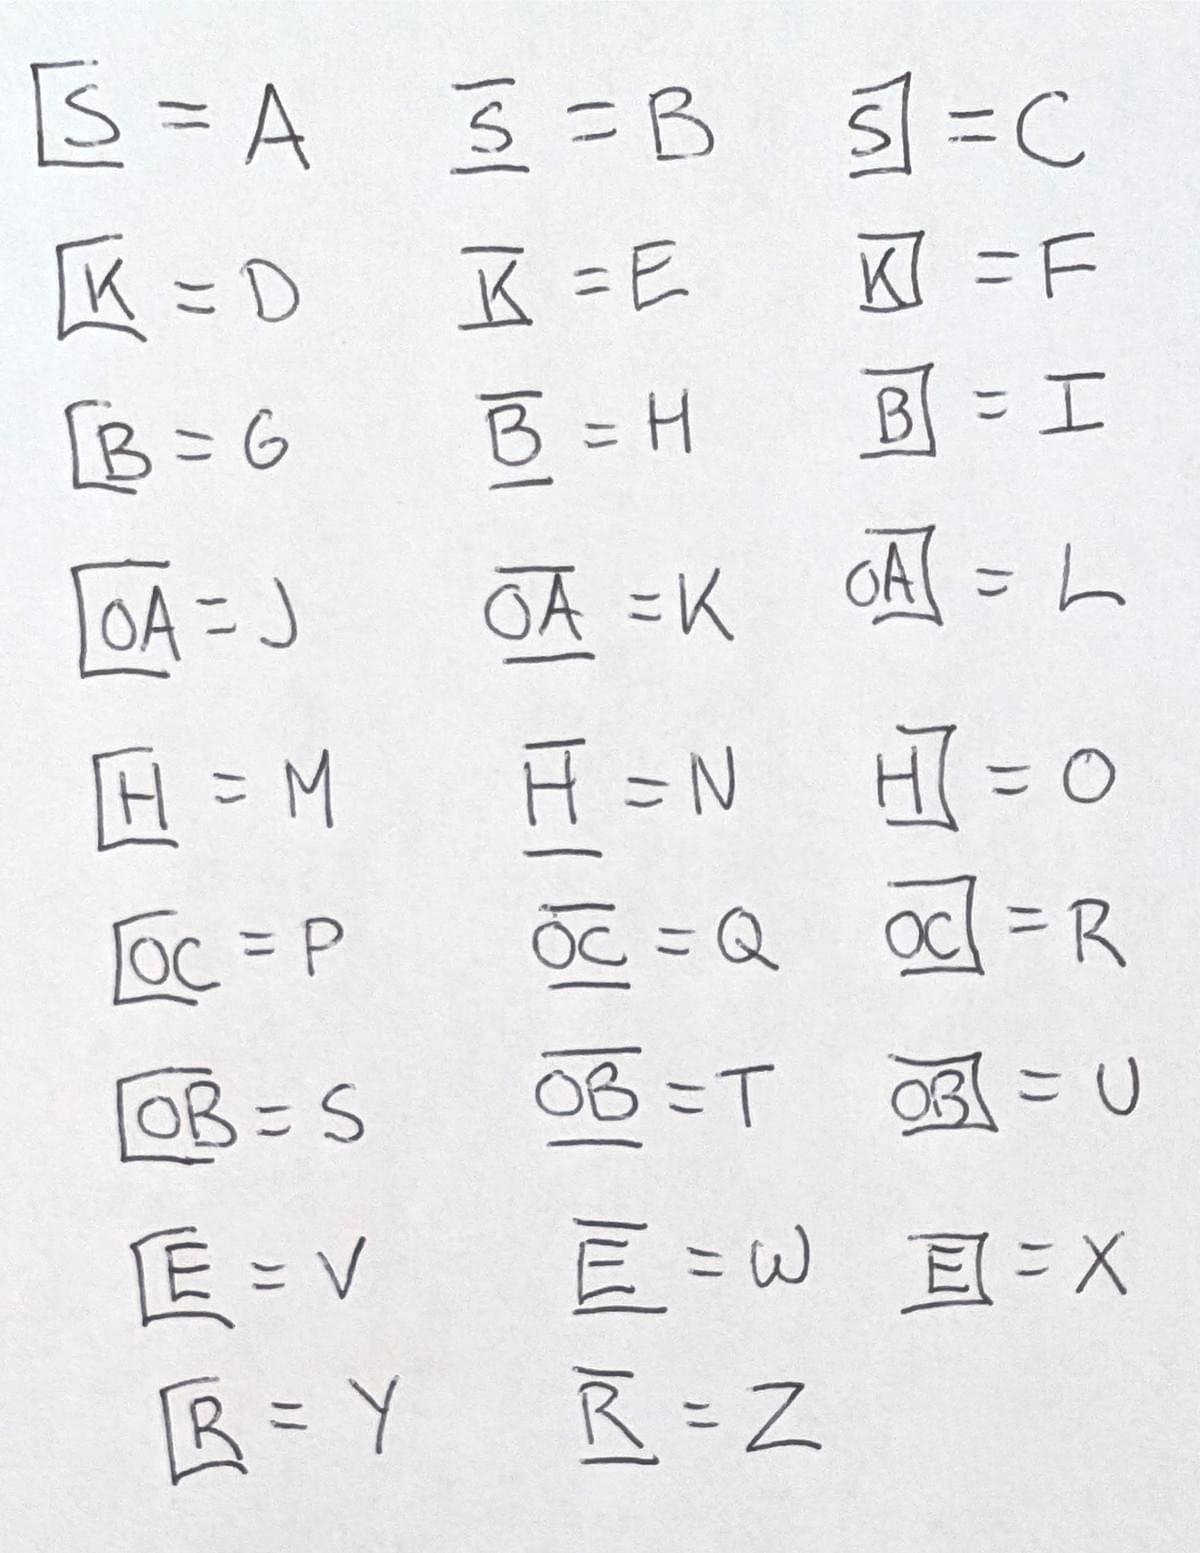 [S = A S = B S] = C
[K = D K = E K] = F
[B = G B = H B] = I
[OA = J OA = K OA] = L
[H = M H = N H] = O
[OC = P OC = Q OC] = R
[OB = S OB = T OB] = U
[E = V E = W E] = X
[R = Y R = Z